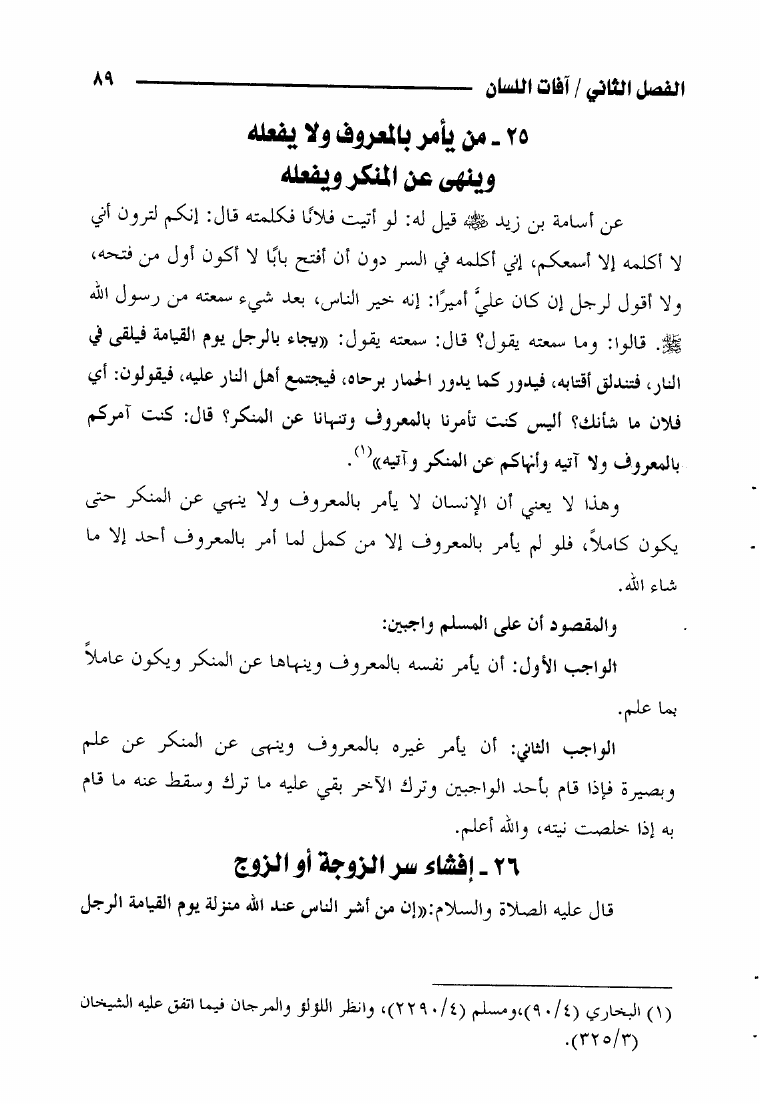 الفصل الثاني / آفات اللسان ٨٩
٢٥ ـ من يأمر بالمعروف ولا يفعله
وينهى عن المنكر ويفعله
عن أسامة بن زيد ﷺ قيل له: لو أتيت فلانًا فكلمته قال: إنكم لترون أني
لا أكلمه إلا أسمعكم، إني أكلمه في السر دون أن أفتح بابًا لا أكون أول من فتحه،
ولا أقول لرجل إن كان عليَّ أميرًا: إنه خير الناس، بعد شيء سمعته من رسول الله
ﷺ. قالوا: وما سمعته يقول؟ قال: سمعته يقول: «يجاء بالرجل يوم القيامة فيلقى في
النار، فتندلق أقتابه، فيدور كما يدور الحمار برحاه، فيجتمع أهل النار عليه، فيقولون: أي
فلان ما شأنك؟ أليس كنت تأمرنا بالمعروف وتنهانا عن المنكر؟ قال: كنت آمركم
بالمعروف ولا آتيه وأنهاكم عن المنكر وآتيه»(١).
وهذا لا يعني أن الإنسان لا يأمر بالمعروف ولا ينهي عن المنكر حتى
يكون كاملاً، فلو لم يأمر بالمعروف إلا من كمل لما أمر بالمعروف أحد إلا ما
شاء الله.
والمقصود أن على المسلم واجبين:
الواجب الأول: أن يأمر نفسه بالمعروف وينهاها عن المنكر ويكون عاملاً
بما علم.
الواجب الثاني: أن يأمر غيره بالمعروف وينهى عن المنكر عن علم
وبصيرة فإذا قام بأحد الواجبين وترك الآخر بقي عليه ما ترك وسقط عنه ما قام
به إذا خلصت نيته، والله أعلم.
٢٦ ـ إفشاء سر الزوجة أو الزوج
قال عليه الصلاة والسلام:«إن من أشر الناس عند الله منزلة يوم القيامة الرجل
(١) البخاري (٩٠/٤)،ومسلم (٢٢٩٠/٤)، وانظر اللؤلؤ والمرجان فيما اتفق عليه الشيخان
(٣٢٥/٣).